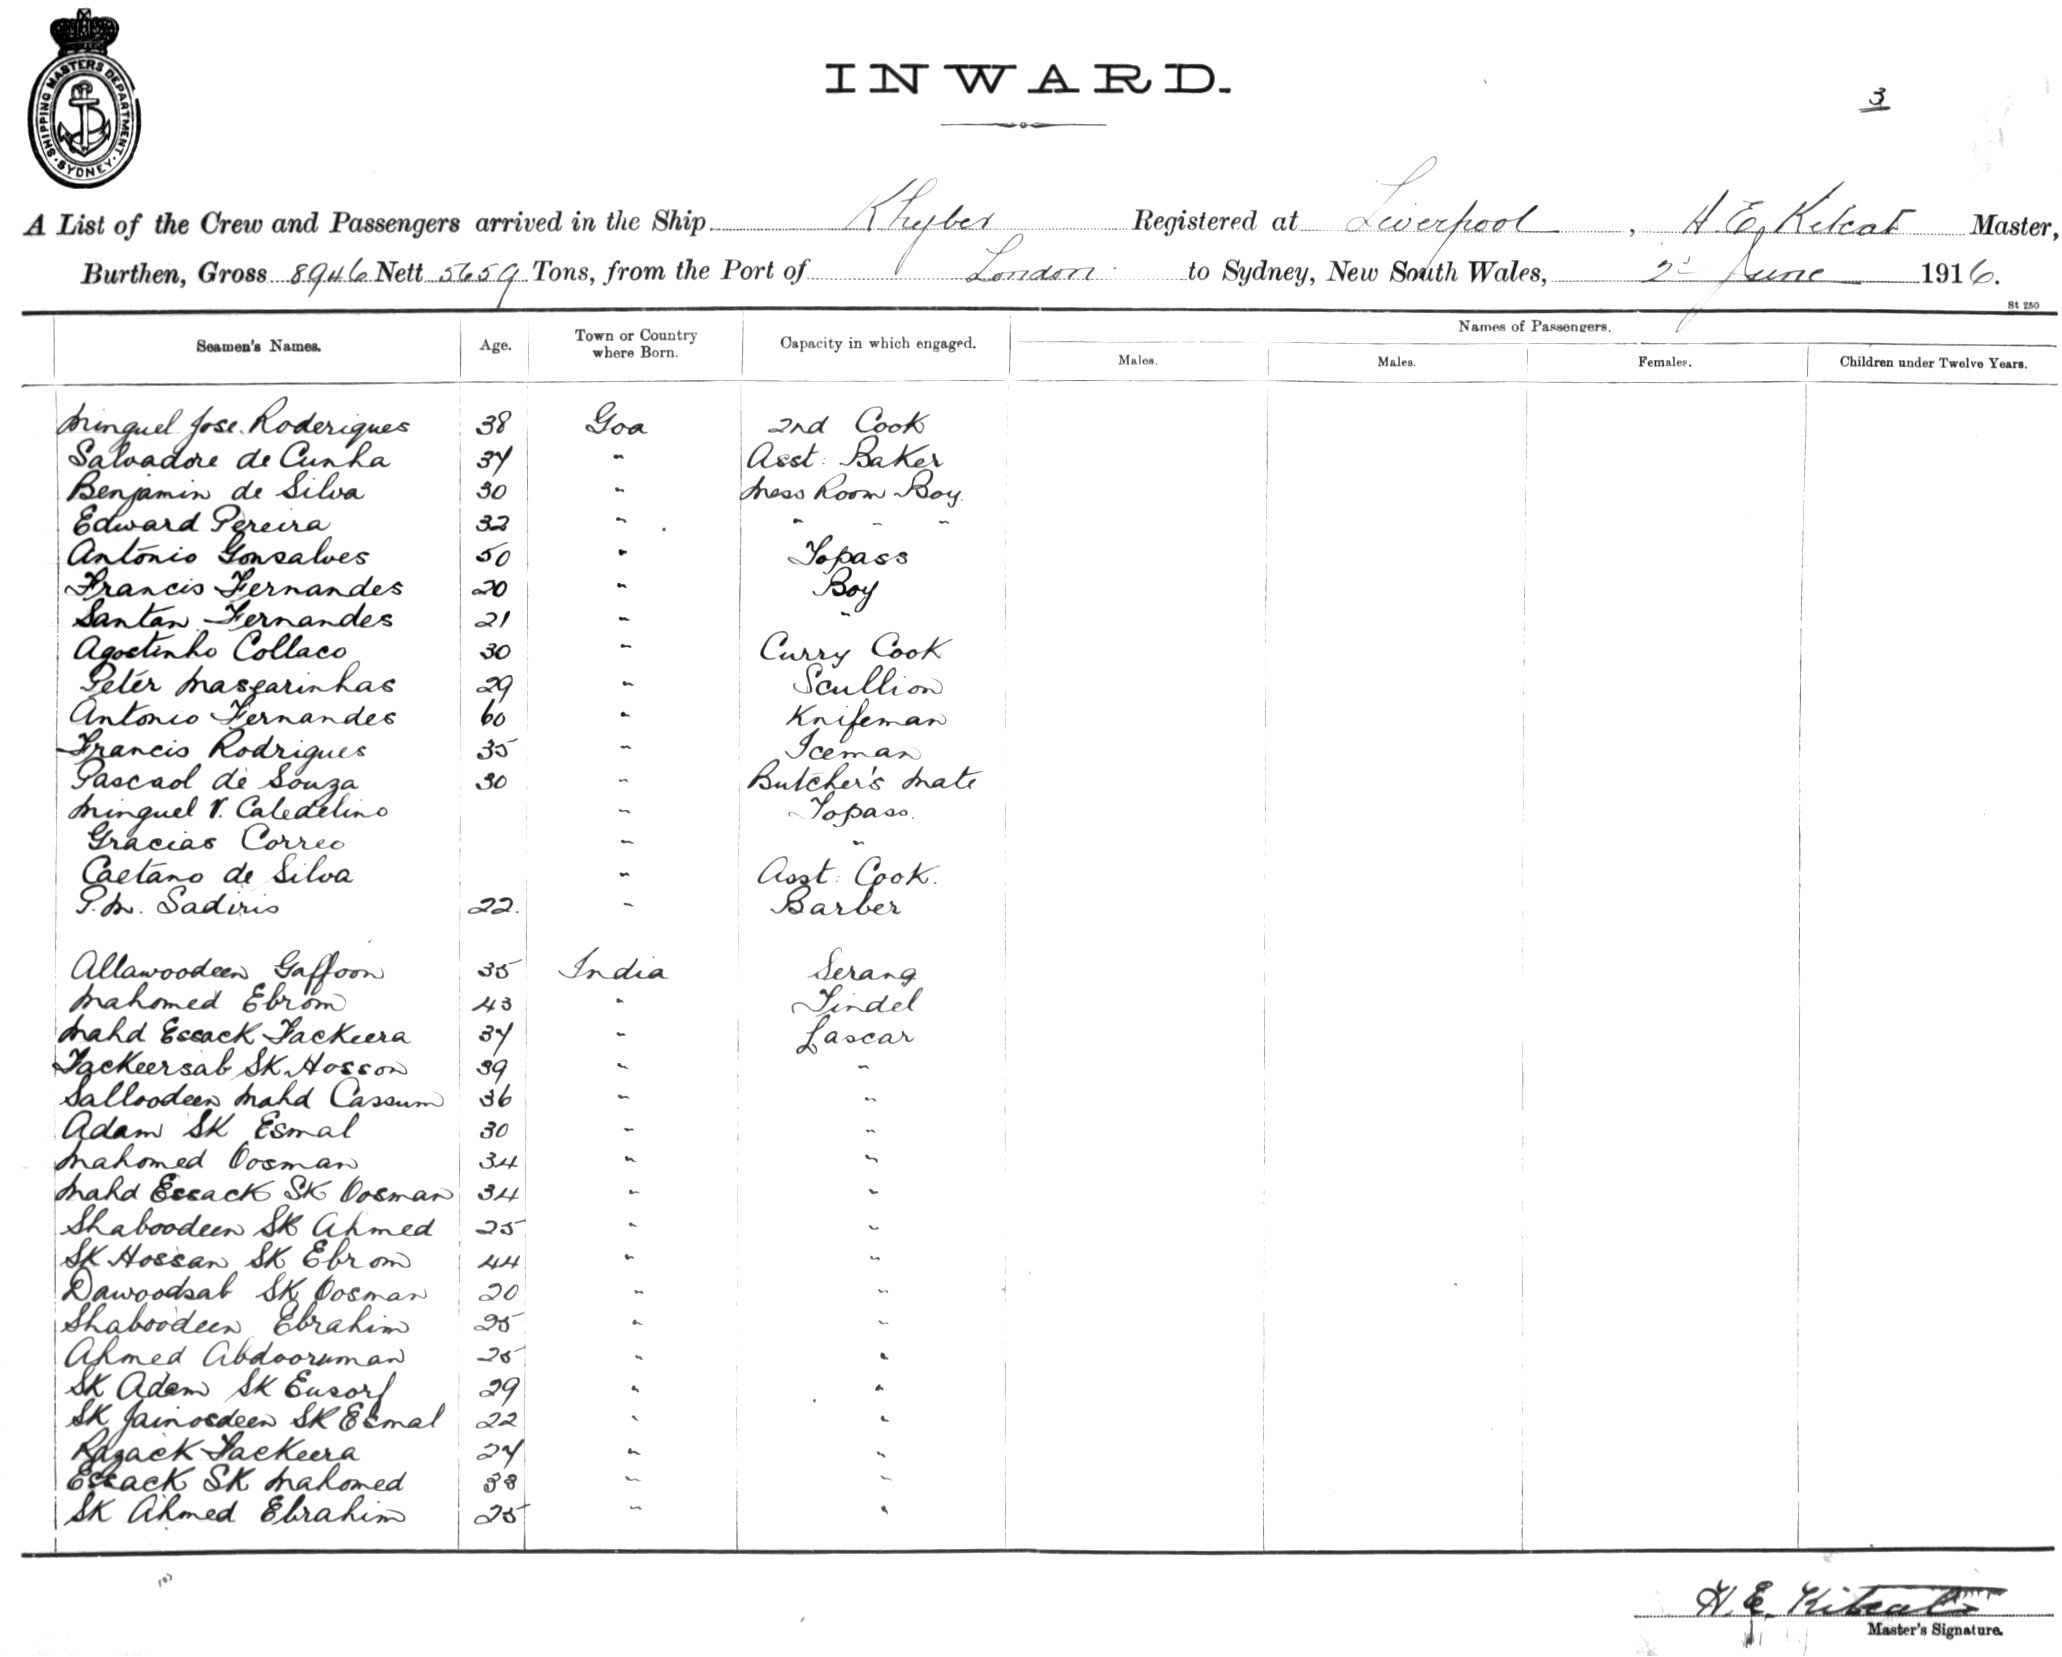 SHIPPING MASTERS DEPARTMENT · SYDNEY ·
INWARD.
3
A List of the Crew and Passengers arrived in the Ship Khyber Registered at Liverpool, H. E. Kitcat Master,
Burthen, Gross 8946 Nett 5659 Tons, from the Port of London to Sydney, New South Wales, 2d June 1916.
St 250
Seamen's Names. Age. Town or Country where Born. Capacity in which engaged. Names of Passengers.
Males. Males. Females. Children under Twelve Years.
Minguel Jose Roderigues 38 Goa 2nd Cook
Salvadore de Cunha 37 " Asst: Baker
Benjamin de Silva 30 " Mess Room Boy.
Edward Pereira 32 " " " "
Antonio Gonsalves 50 " Topass
Francis Fernandes 20 " Boy
Santan Fernandes 21 " "
Agostinho Collaco 30 " Curry Cook
Peter Mascarinhas 29 " Scullion
Antonio Fernandes 60 " Knifeman
Francis Rodrigues 35 " Iceman
Pascaol de Souza 30 " Butcher's Mate
Minguel V. Caledelino " Topass.
Gracias Correo " "
Caetano de Silva " Asst: Cook.
P. M. Sadiris 22. " Barber
Allawoodeen Gaffoon 35 India Serang
Mahomed Ebrom 43 " Tindel
Mahd Essack Fackeera 37 " Lascar
Fackeersab SK Hosson 39 " "
Salloodeen Mahd Cassum 36 " "
Adam SK Esmal 30 " "
Mahomed Oosman 34 " "
Mahd Essack SK Oosman 34 " "
Shaboodeen SK Ahmed 25 " "
SK Hossan SK Ebrom 44 " "
Dawoodsab SK Oosman 20 " "
Shaboodeen Ebrahim 25 " "
Ahmed Abdooruman 25 " "
SK Adam SK Eusorf 29 " "
SK Jainosdeen SK Esmal 22 " "
Razack Fackeera 27 " "
Essack SK Mahomed 38 " "
SK Ahmed Ebrahim 25 " "
H. E. Kitcat
Master's Signature.